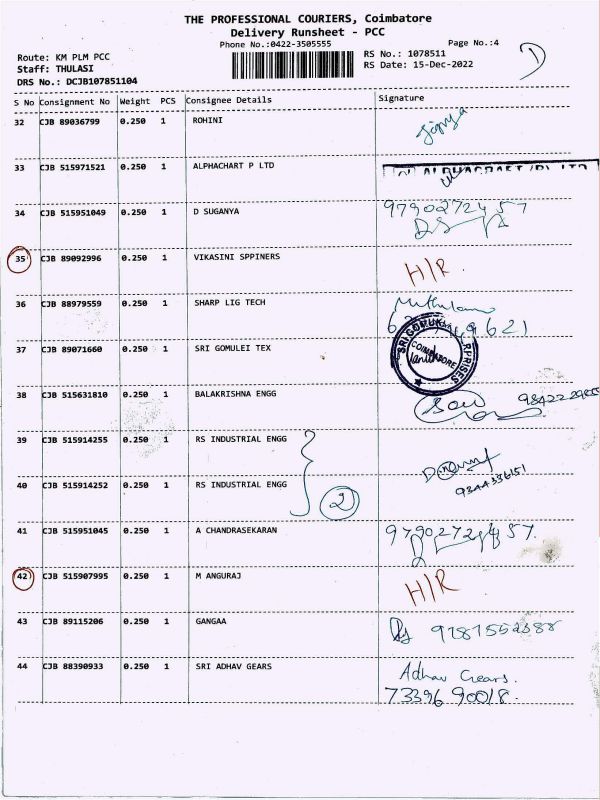 THE PROFESSIONAL COURIERS, Coimbatore
Delivery Runsheet - PCC
Phone No.:0422-3505555
Page No.:4
Route: KM PLM PCC
RS No.: 1078511
Staff: THULASI
RS Date: 15-Dec-2022
DRS No.: DCJB107851104
S No Consignment No Weight PCS Consignee Details Signature
32 CJB 89036799 0.250 1 ROHINI
33 CJB 515971521 0.250 1 ALPHACHART P LTD
34 CJB 515951049 0.250 1 D SUGANYA 9790272457
35 CJB 89092996 0.250 1 VIKASINI SPPINERS H/R
36 CJB 88979559 0.250 1 SHARP LIG TECH
37 CJB 89071660 0.250 1 SRI GOMULEI TEX COIMBATORE
38 CJB 515631810 0.250 1 BALAKRISHNA ENGG
39 CJB 515914255 0.250 1 RS INDUSTRIAL ENGG
40 CJB 515914252 0.250 1 RS INDUSTRIAL ENGG 2 9344336151
41 CJB 515951045 0.250 1 A CHANDRASEKARAN 9790272457
42 CJB 515907995 0.250 1 M ANGURAJ H/R
43 CJB 89115206 0.250 1 GANGAA
44 CJB 88390933 0.250 1 SRI ADHAV GEARS Adhav Gears.
73396 90018.